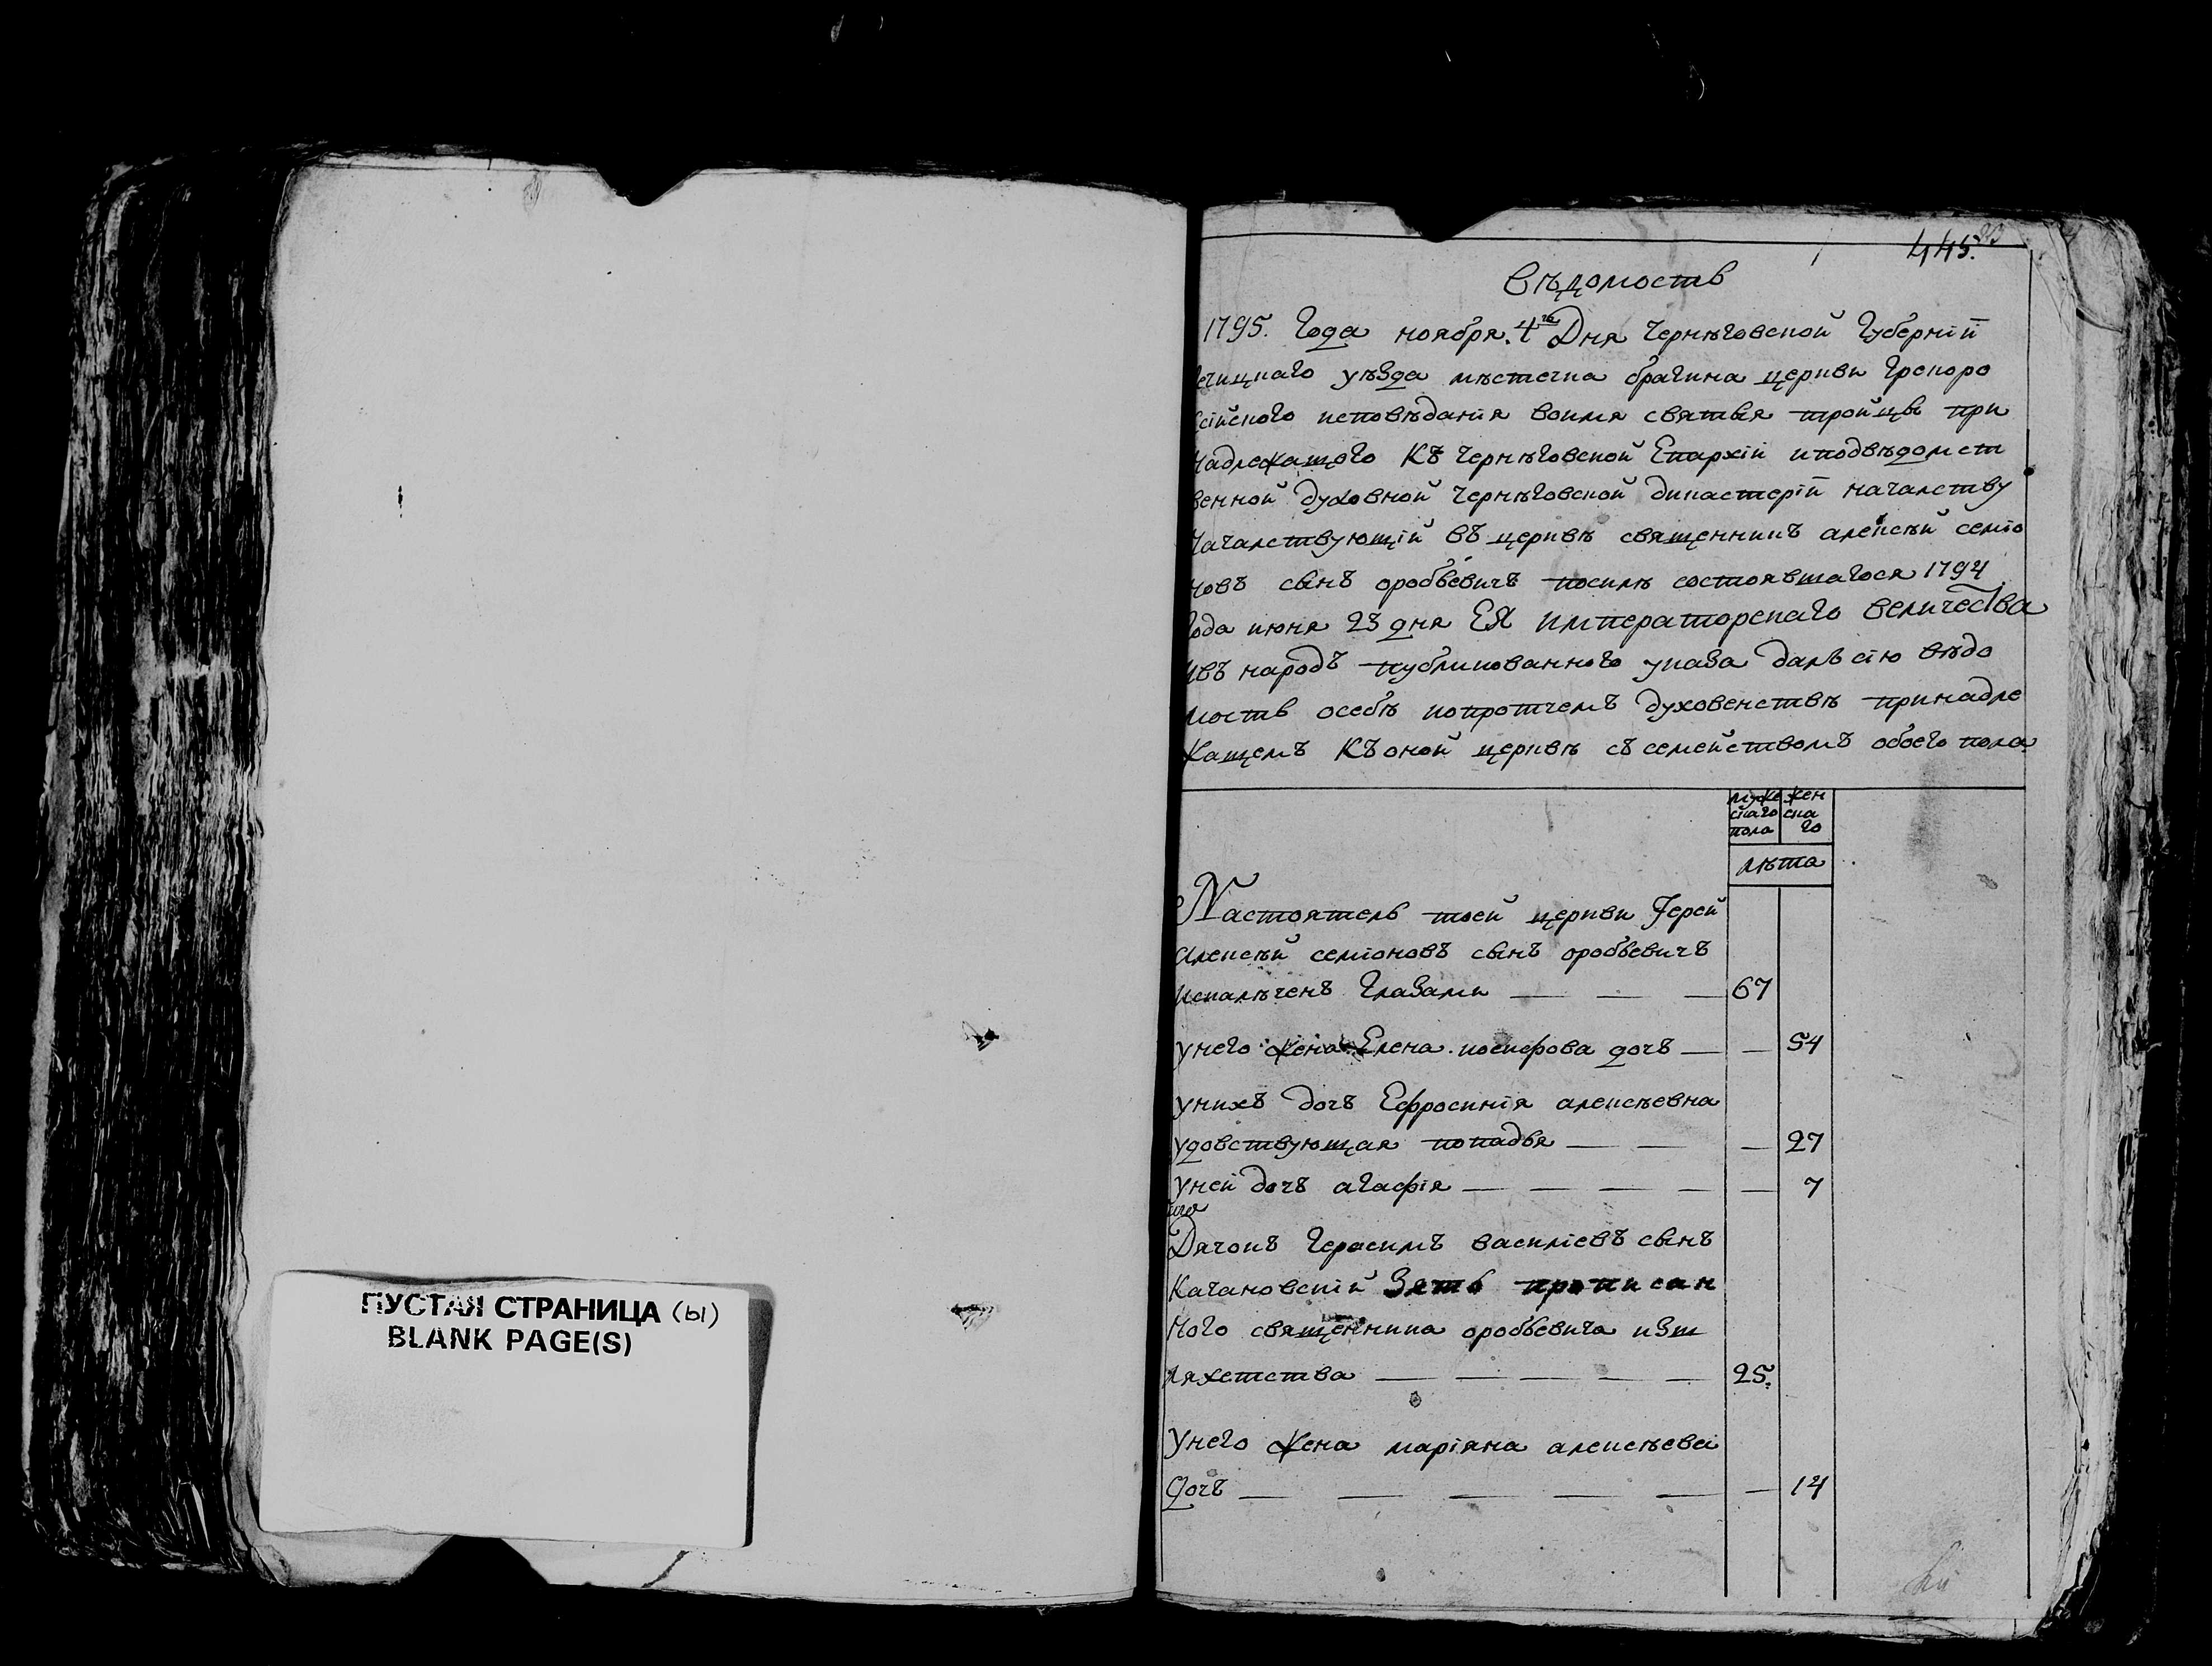 ПУСТАЯ СТРАНИЦА (ы)
BLANK PAGE(S)
445.
Вѣдомость
1795. Года ноября. 4го Дня Чернѣговской Губерніи
ечицкаго уѣзда мѣстечка брагина церкви Грекоро
сійского исповѣданія воимя святыя тройцы при
надлежащого Къ Чернѣговской Епархіи иподвѣдомст
венной духовной Чернѣговской дикастеріи началству
Началствующій въ церквѣ священникъ алексѣй семіо
новъ сынъ оробьевичъ посилѣ состоявшагося 1794
года июня 23 дня ЕЯ императорскаго величества
ивъ народъ публикованного указа далъ сію вѣдо
мость о себѣ ипротчемъ духовенствѣ принадле
жащемъ Къ оной церквѣ съ семействомъ обоего пола
муже скаго пола
жен ска го
лѣта
Настоятель тоей церкви Іерей
алексѣй семіоновъ сынъ оробьевичъ
искалѣченъ Глазами — — — 67
унего жена Елена иосифова дочъ — — 54
унихъ дочъ Ефросинія алексѣевна
удовствующая попадья — — — 27
уней дочъ агафія — — — — — 7
Дячокъ Герасимъ василіевъ сынъ
Качановскій Зять прописан
ного священника оробьевича изш
ляхетства — — — — — 25.
Унего жена маріяна алексѣева
Дочъ — — — — — — 14